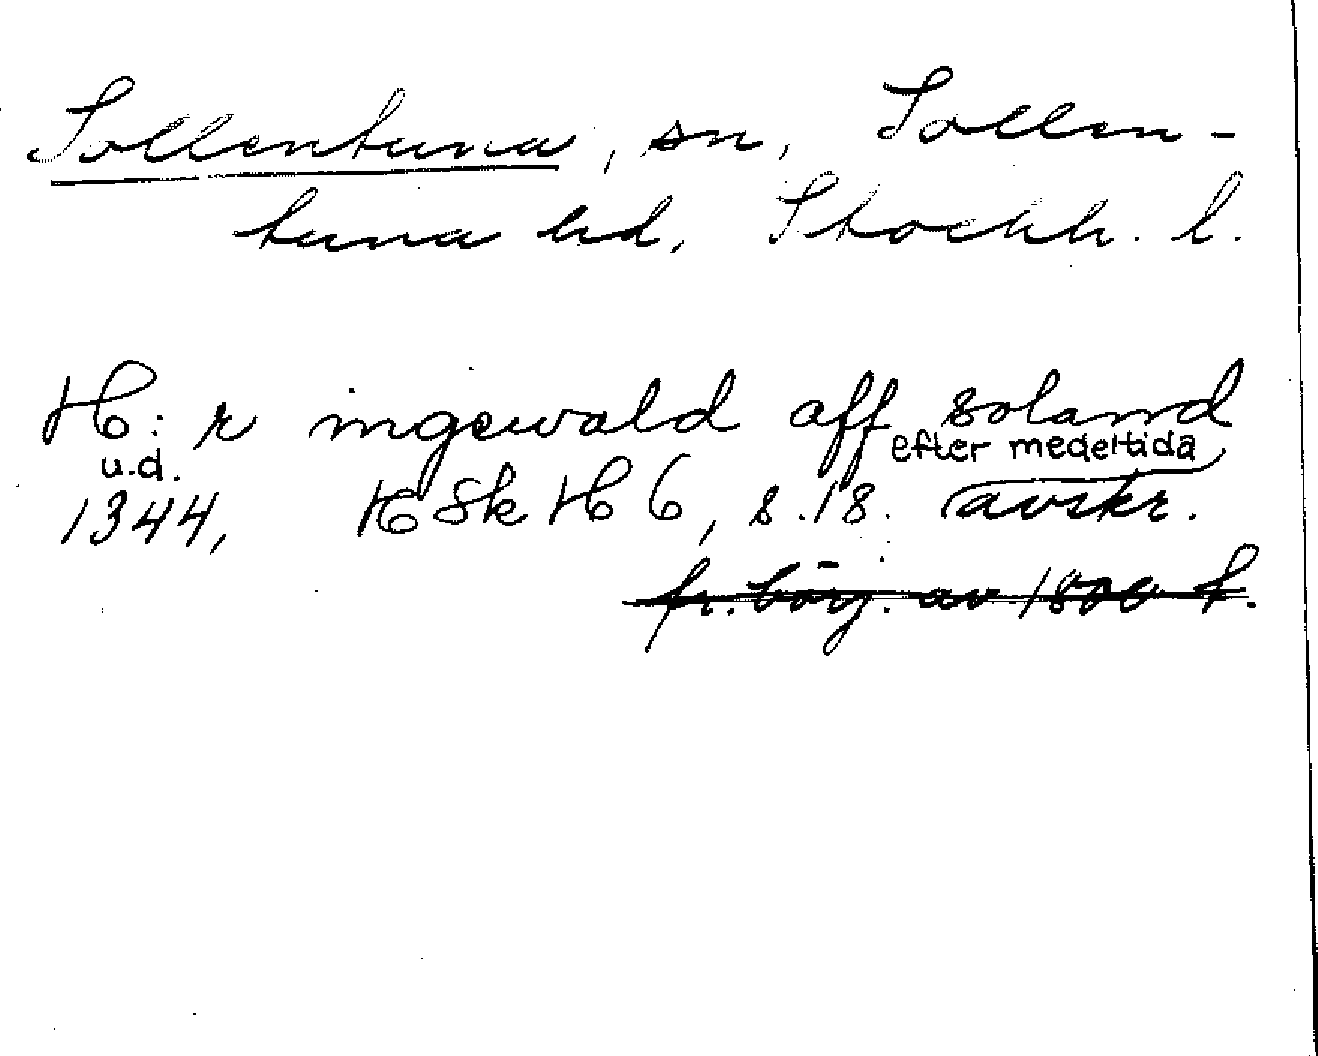 Sollentuna, sn, Sollen-
tuna hd, Stockh. l.
H:r ingewald aff soland
u.d. efter medeltida
1344, HSkH 6, s.18. avskr.
fr. börj. av 1800 t.